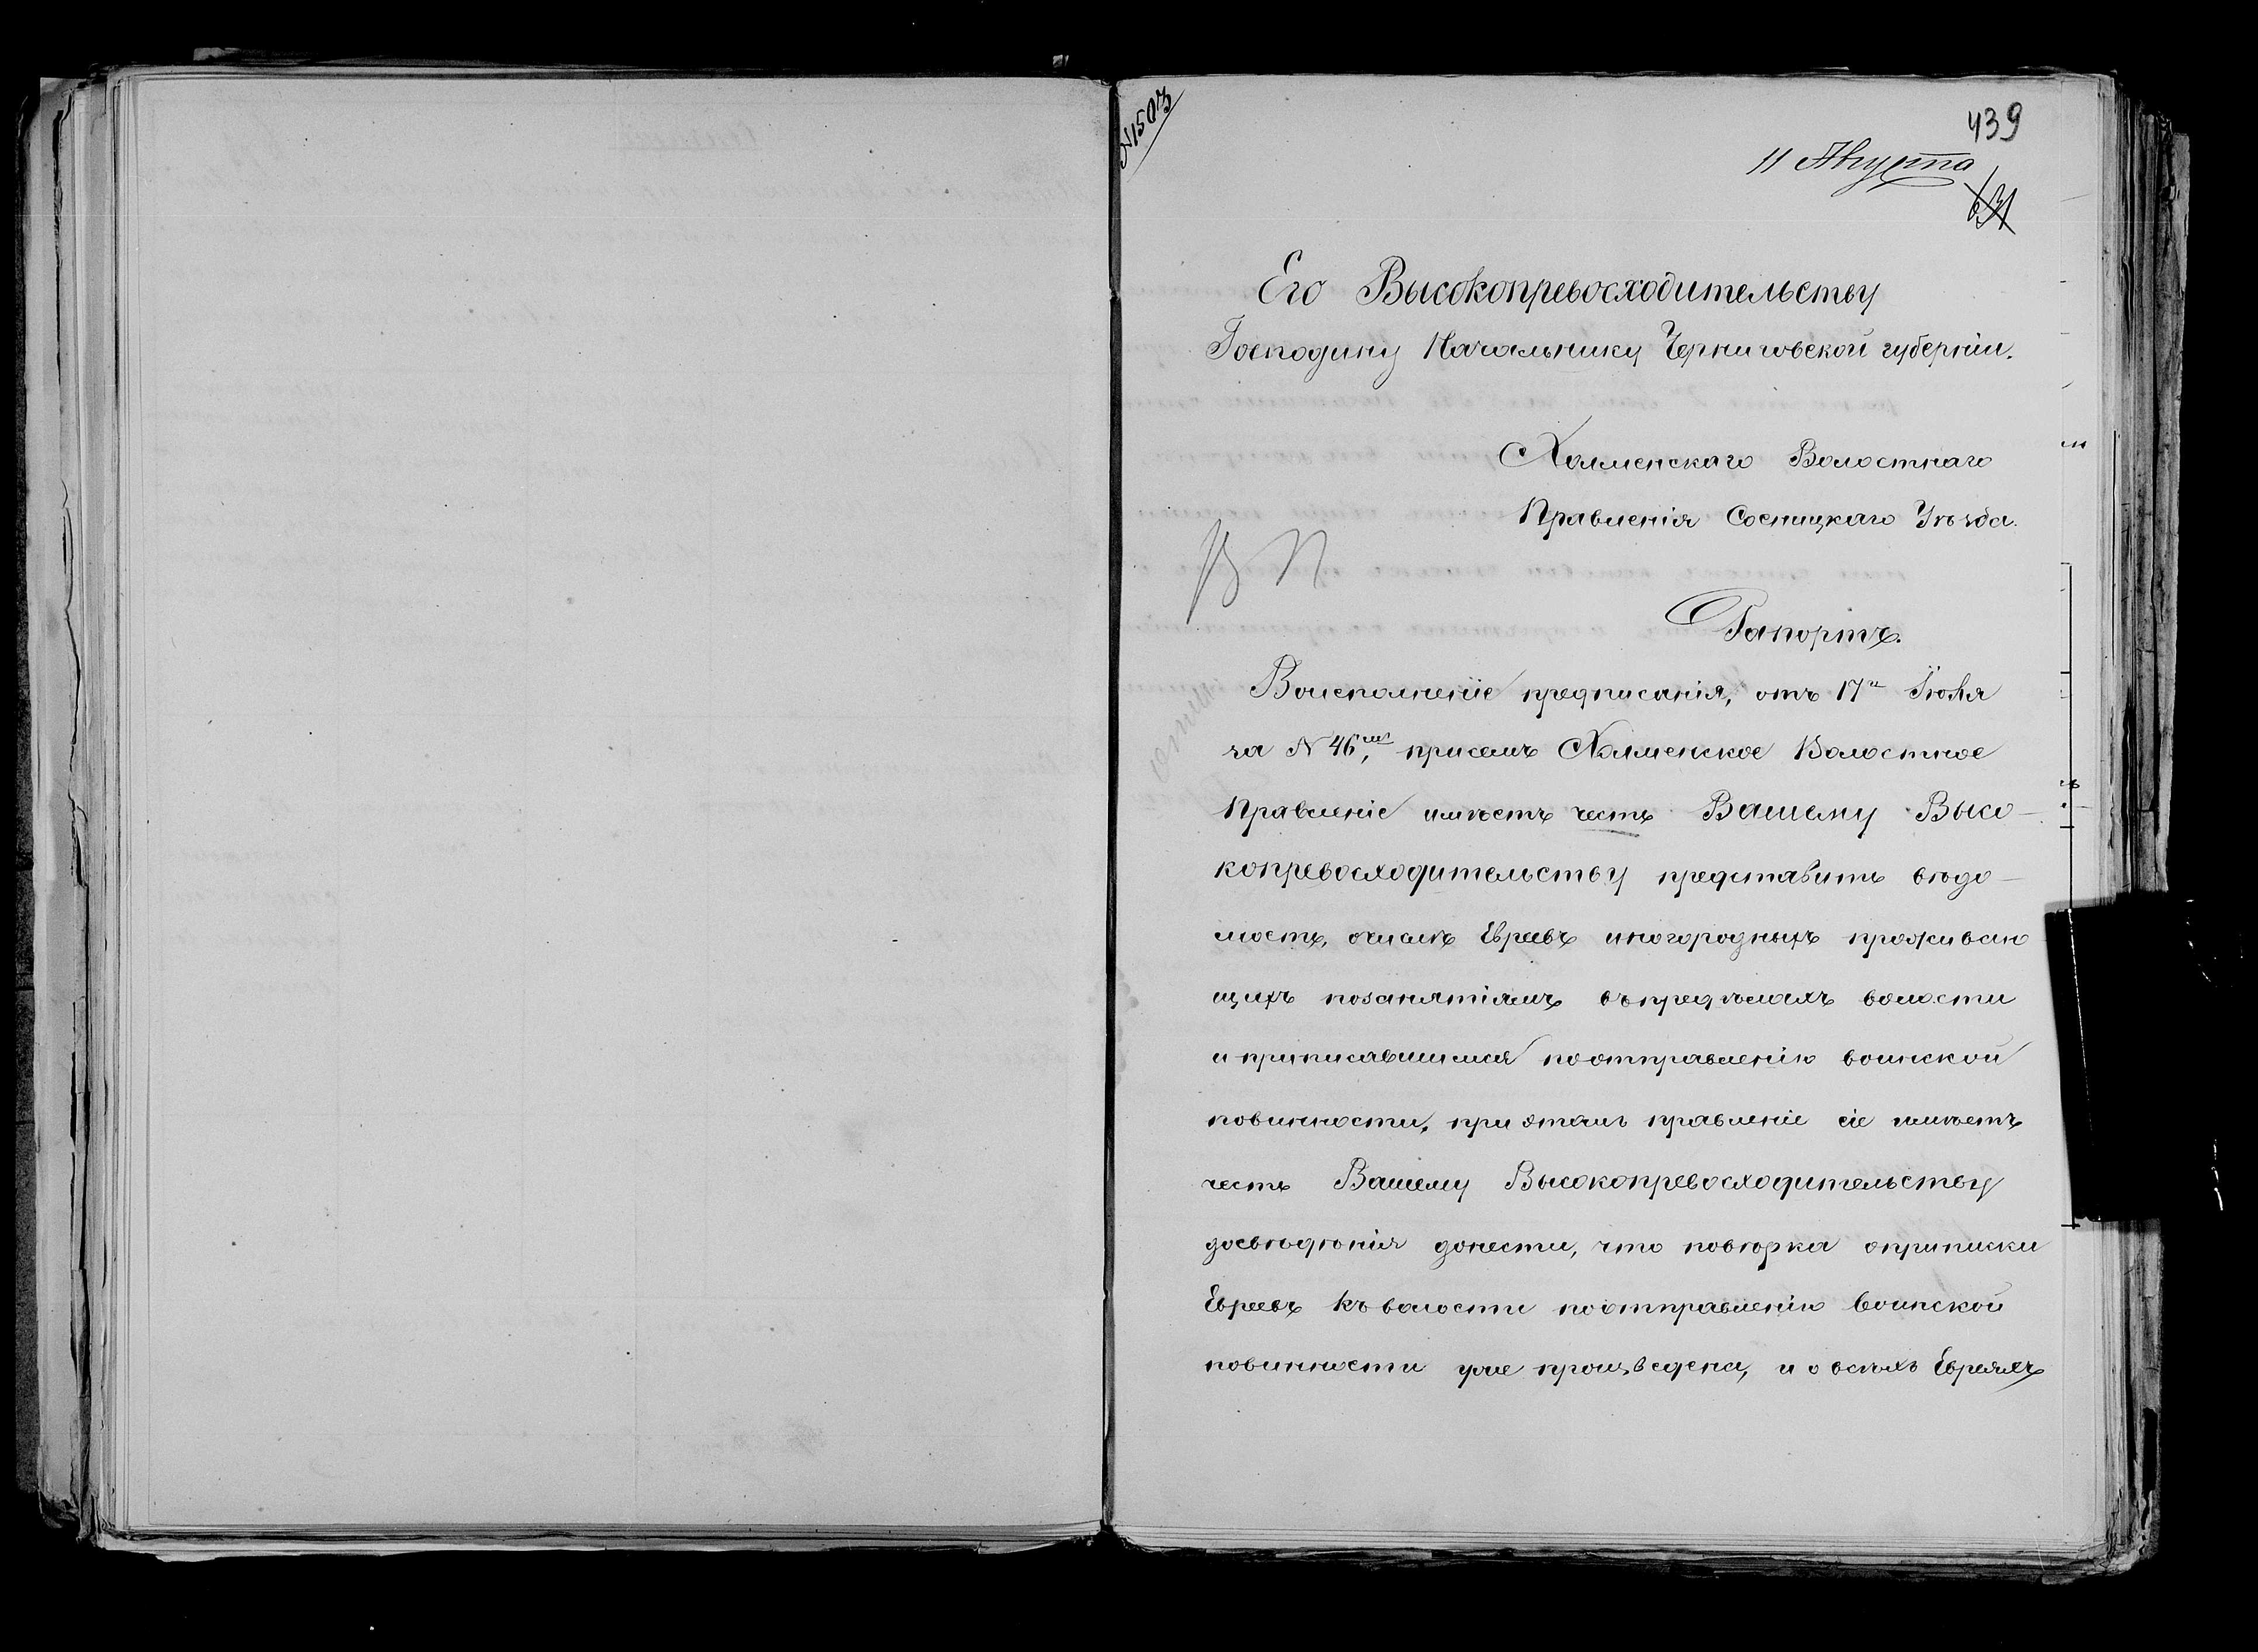 №1503
439
11 Августа
631
Его Высокопревосходительству
Господину Начальнику Черниговской губерніи.
Холменскаго Волостнаго
Правленія Сосницкаго Уѣзда.
Рапортъ.
Воисполненіе предписанія, отъ 17го Іюля
за № 46, присемъ Холменское Волостное
Правленіе имѣетъ честь Вашему Высо-
копревосходительству представить вѣдо-
мость, очислѣ Евреевъ иногородныхъ проживаю
щихъ позанятіямъ въпредѣлахъ волости
и приписавшимся поотправленію воинской
повинности, при этомъ правленіе сіе имѣетъ
честь Вашему Высокопревосходительству
досвѣдѣнія донести, что повѣрка оприписки
Евреевъ къволости поотправленію воинской
повинности уже произведена, и о всѣхъ Евреяхъ